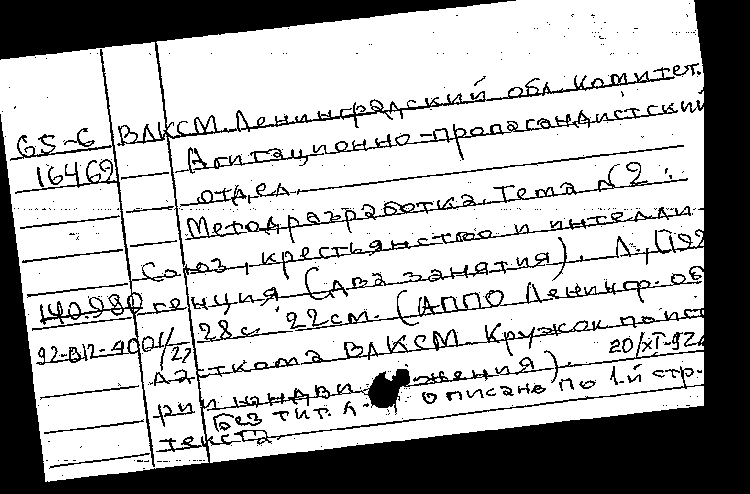 65-6 ВЛКСМ. Ленинградский обл. комитет.
16469 Агитационно-пропагандистский
отдел.
Метод. разработка. Тема № 2:
Союз, крестьянство и интелли-
140.980 генция (Два занятия). Л., [192
28 с. 22 см. (АППО Ленингр. об
92-В12-4001/27 ласткома ВЛКСМ. Кружок по исто
рии юндвижения). 20/XI-92
Без тит. л. Описано по 1-й стр.
текста.